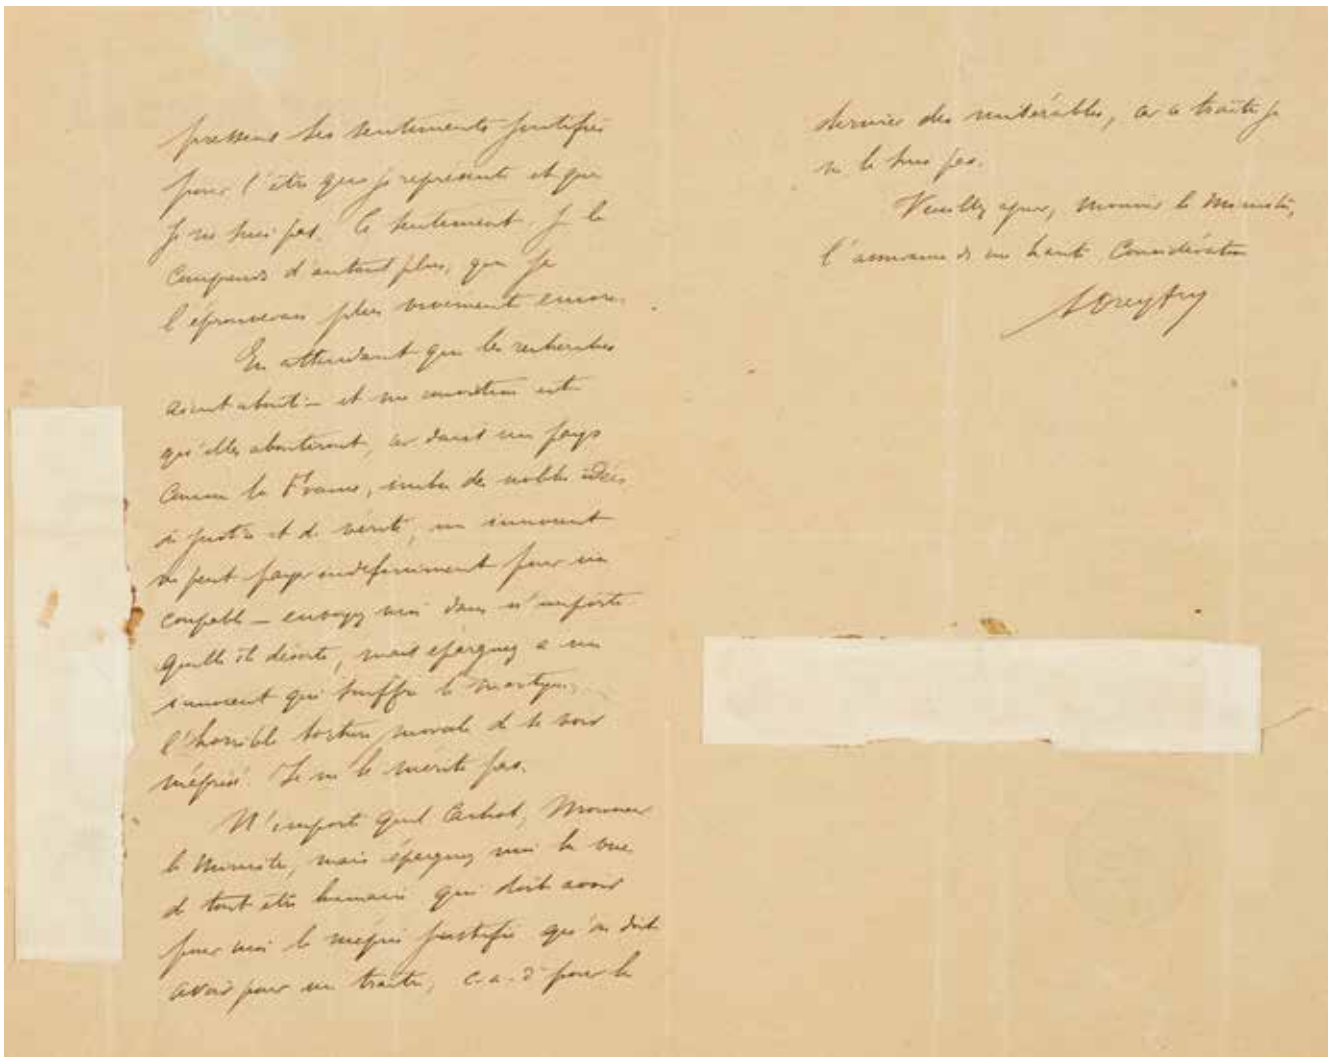 pressent les sentiments justifiés
pour l'être que je représente et que
je ne suis pas. Ce sentiment, je le
comprends d'autant plus, que je
l'éprouverais plus vivement encore.
En attendant que les recherches
aient abouti — et ma conviction est
qu'elles aboutiront, car dans un pays
comme la France, imbu des nobles idées
de justice et de vérité, un innocent
ne peut payer indéfiniment pour un
coupable — envoyez moi dans n'importe
quelle île déserte, mais épargnez a un
innocent qui souffre le martyre,
l'horrible torture morale de se voir
méprisé. Je ne le mérite pas.
N'importe quel cachot, Monsieur
le Ministre, mais épargnez moi la vue
de tout être humain qui doit avoir
pour moi le mépris justifié qu'on doit
avoir pour un traître, c.a.d pour le
dernier des misérables, car ce traître je
ne le suis pas.
Veuillez agréer, Monsieur le Ministre,
l'assurance de ma haute Considération
ADreyfus